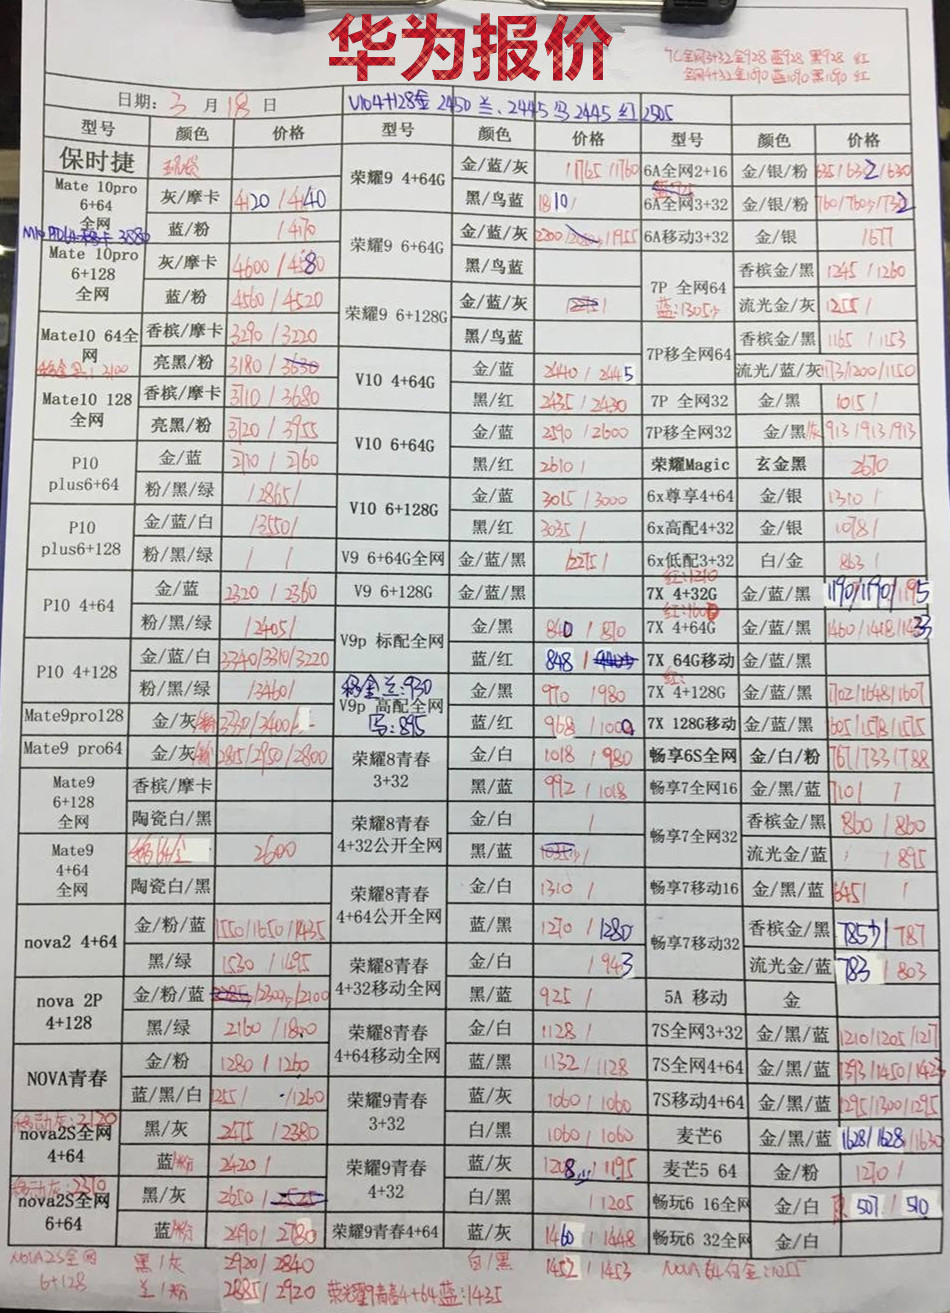 华为报价
7C全网3+32金928 蓝928 黑928 红
全网4+32金1090 蓝1090 黑1090 红
日期: 3 月 18 日 V10 4+128金 2450 兰、2445 乌 2445 红 2505
型号 颜色 价格 型号 颜色 价格 型号 颜色 价格
保时捷
Mate 10pro 6+64 全网 灰/摩卡 4120 / 4140
蓝/粉 / 4170
Mate 10pro 6+128 全网 灰/摩卡 4600 /
蓝/粉 4560 / 4520
Mate10 64全网 香槟/摩卡 3290 / 3220
亮黑/粉 3180 /
Mate10 128 全网 香槟/摩卡 3710 / 3680
亮黑/粉 3720 / 3955
P10 plus6+64 金/蓝 2710 / 2760
粉/黑/绿 / 2865 /
P10 plus6+128 金/蓝/白 / 3550 /
粉/黑/绿 / /
P10 4+64 金/蓝 2320 / 2360
粉/黑/绿 / 2405 /
P10 4+128 金/蓝/白 3340/3310/3220
粉/黑/绿 / 3460 /
Mate9pro128 金/灰
Mate9 pro64 金/灰 /2950 /2800
Mate9 6+128 全网 香槟/摩卡
陶瓷白/黑
Mate9 4+64 全网 2600
陶瓷白/黑
nova2 4+64 金/粉/蓝 1550/1650/1435
黑/绿 1530 / 1495
nova 2P 4+128 金/粉/蓝 /2100
黑/绿 2160 /
NOVA青春 金/粉 1280 / 1260
蓝/黑/白 1255 / /1260
移动灰:2120
nova2S全网 4+64 黑/灰 2475 / 2380
蓝/粉 2420 /
移动灰:2310
nova2s全网 6+64 黑/灰 2650 / 2525
蓝/粉 2490 / 2780
NOVA2S全网 6+128 黑/灰 2920 / 2840
兰/粉 2885 / 2920
荣耀9 4+64G 金/蓝/灰 /1765 /1760
黑/鸟蓝 1810 /
荣耀9 6+64G 金/蓝/灰 /1955
黑/鸟蓝
荣耀9 6+128G 金/蓝/灰
黑/鸟蓝
V10 4+64G 金/蓝 2440 / 2445
黑/红 2435 / 2430
V10 6+64G 金/蓝 2590 / 2600
黑/红 2610 /
V10 6+128G 金/蓝 3015 / 3000
黑/红 3035 /
V9 6+64G全网 金/蓝/黑 /2275 /
V9 6+128G 金/蓝/黑
V9p 标配全网 金/黑 840 / 810
蓝/红 848 /
移金兰:930
V9p 高配全网 金/黑 970 / 980
乌:895 蓝/红 968 / 1000
荣耀8青春 3+32 金/白 1018 / 980
黑/蓝 992 / 1018
荣耀8青春 4+32公开全网 金/白 /
黑/蓝
荣耀8青春 4+64公开全网 金/白 1310 /
蓝/黑 1270 / 1280
荣耀8青春 4+32移动全网 金/白 / 943
黑/蓝 925 /
荣耀8青春 4+64移动全网 金/白 1128 /
蓝/黑 1132 / 1128
荣耀9青春 3+32 蓝/灰 1060 / 1060
白/黑 1060 / 1060
荣耀9青春 4+32 蓝/灰 1208 / 1195
白/黑 / 1205
荣耀9青春4+64 蓝/灰 1460 / 1448
白/黑 1452 / 1453
荣耀9青春4+64蓝:1435
6A全网2+16 金/银/粉 635/632/630
6A全网3+32 金/银/粉 760/760/732
6A移动3+32 金/银 /677
7P 全网64 香槟金/黑 1245 / 1260
蓝:1305 流光金/灰 1255 /
7P移全网64 香槟金/黑 1165 / 1153
流光/蓝/灰 1173/1200/1150
7P 全网32 金/黑 1015 /
7P移全网32 金/黑/灰 913/913/913
荣耀Magic 玄金黑 2670
6x尊享4+64 金/银 1310 /
6x高配4+32 金/银 1078 /
6x低配3+32 白/金 863 /
红:1210
7X 4+32G 金/蓝/黑 1190/1190/1195
7X 4+64G 金/蓝/黑 1460/1418/1433
7X 64G移动 金/蓝/黑
红:
7X 4+128G 金/蓝/黑 1702/1648/1607
7X 128G移动 金/蓝/黑 1605/1578/1575
畅享6S全网 金/白/粉 767/733/788
畅享7全网16 金/黑/蓝 710 / /
畅享7全网32 香槟金/黑 860 / 860
流光金/蓝 / 895
畅享7移动16 金/黑/蓝 645 / /
畅享7移动32 香槟金/黑 785 / 787
流光金/蓝 783 / 803
5A 移动 金
7S全网3+32 金/黑/蓝 1210/1205/1217
7S全网4+64 金/黑/蓝 1393/1450/1423
7S移动4+64 金/黑/蓝 1295/1300/1295
麦芒6 金/黑/蓝 1628/1628/1630
麦芒5 64 金/粉 1270 /
畅玩6 16全网 金/白 507 / 510
畅玩6 32全网 金/白
NOVA 64白金:1055